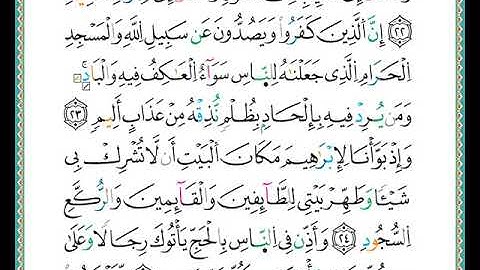 ٢٢ إِنَّ ٱلَّذِينَ كَفَرُواْ وَيَصُدُّونَ عَن سَبِيلِ ٱللَّهِ وَٱلْمَسْجِدِ
ٱلْحَرَامِ ٱلَّذِى جَعَلْنَٰهُ لِلنَّاسِ سَوَآءٌ ٱلْعَٰكِفُ فِيهِ وَٱلْبَادِ
وَمَن يُرِدْ فِيهِ بِإِلْحَادٍۭ بِظُلْمٍ نُّذِقْهُ مِنْ عَذَابٍ أَلِيمٍ ٢٣
وَإِذْ بَوَّأْنَا لِإِبْرَٰهِيمَ مَكَانَ ٱلْبَيْتِ أَن لَّا تُشْرِكْ بِى
شَيْـًٔا وَطَهِّرْ بَيْتِى لِلطَّآئِفِينَ وَٱلْقَآئِمِينَ وَٱلرُّكَّعِ
ٱلسُّجُودِ ٢٤ وَأَذِّن فِى ٱلنَّاسِ بِٱلْحَجِّ يَأْتُوكَ رِجَالًا وَعَلَىٰ